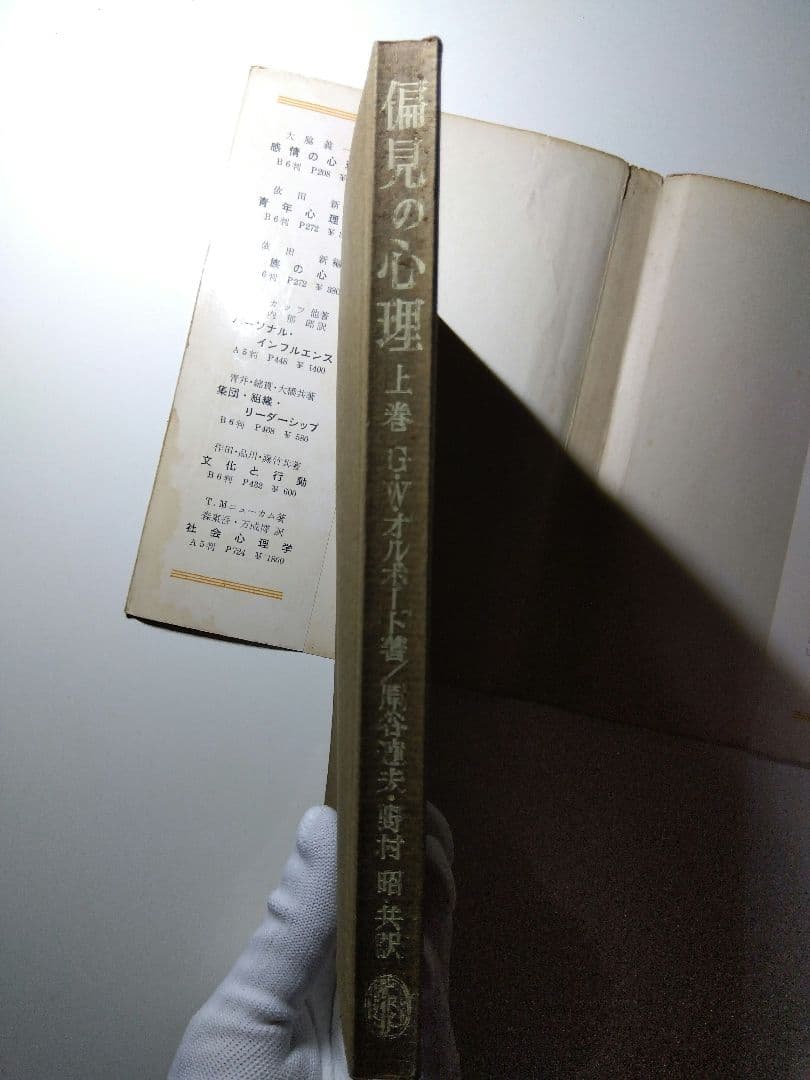 偏見の心理 上巻 G・W・オルポート著/原谷達夫・野村 昭 共訳
大脇義一
感情の心理
B6判 P208 ¥
依田 新
青年心理
B6判 P272 ¥
依田 新編
の心
6判 P272 ¥390
カッツ他著
内郁郎訳
パーソナル・
インフルエンス
A5判 P448 ¥1400
青井・綿貫・大橋共著
集団・組織・
リーダーシップ
B6判 P408 ¥580
作田・品川・藤竹共著
文化と行動
B6判 P432 ¥600
T.Mニューカム著
森東吾・万成博訳
社会心理学
A5判 P724 ¥1800